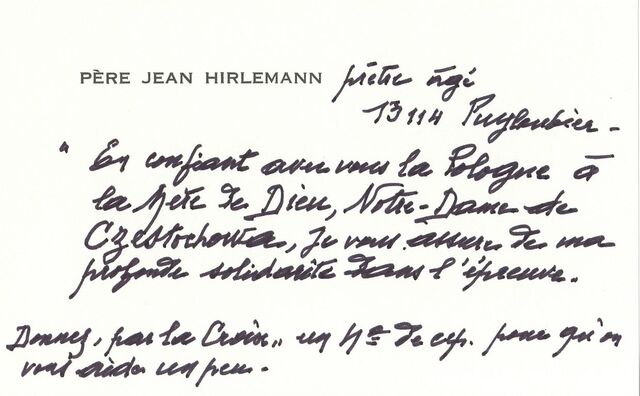 PÈRE JEAN HIRLEMANN prêtre âgé
13114 Puyloubier -
" En confiant avec vous la Pologne à
la Mère de Dieu, Notre-Dame de
Czestochowa, je vous assure de ma
profonde solidarité dans l'épreuve.
Donnez, par la Croix" un N° de ccp. pour qu'on
vous aide un peu.